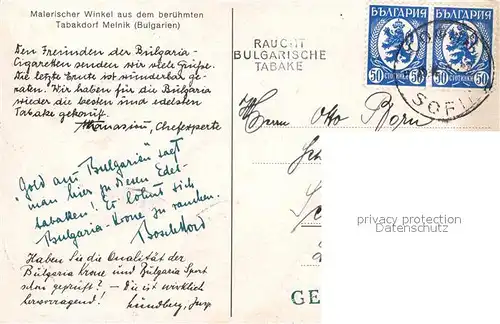 Malerischer Winkel aus dem berühmten
Tabakdorf Melnik (Bulgarien)
Den Freunden der Bulgaria-
Cigaretten senden wir viele Grüße.
Die letzte Ernte ist wunderbar ge-
raten. Wir haben für die Bulgaria
wieder die besten und edelsten
Tabake gekauft.
Athanasiu, Chefexperte
"Gold aus Bulgarien" sagt
man hier zu diesen Edel-
tabaken! Es lohnt sich
Bulgaria-Krone zu rauchen.
Haben Sie die Qualität der
Bulgaria Krone und Bulgaria Sport
schon geprüft? - die ist wirklich
hervorragend!
RAUCHT
BULGARISCHE
TABAKE
БЪЛГАРИЯ
БЪЛГАРИЯ
50 СТОТИНКИ 50
50 СТОТИНКИ 50
SOFIA
Herrn Otto Born
privacy protection
Datenschutz
GE